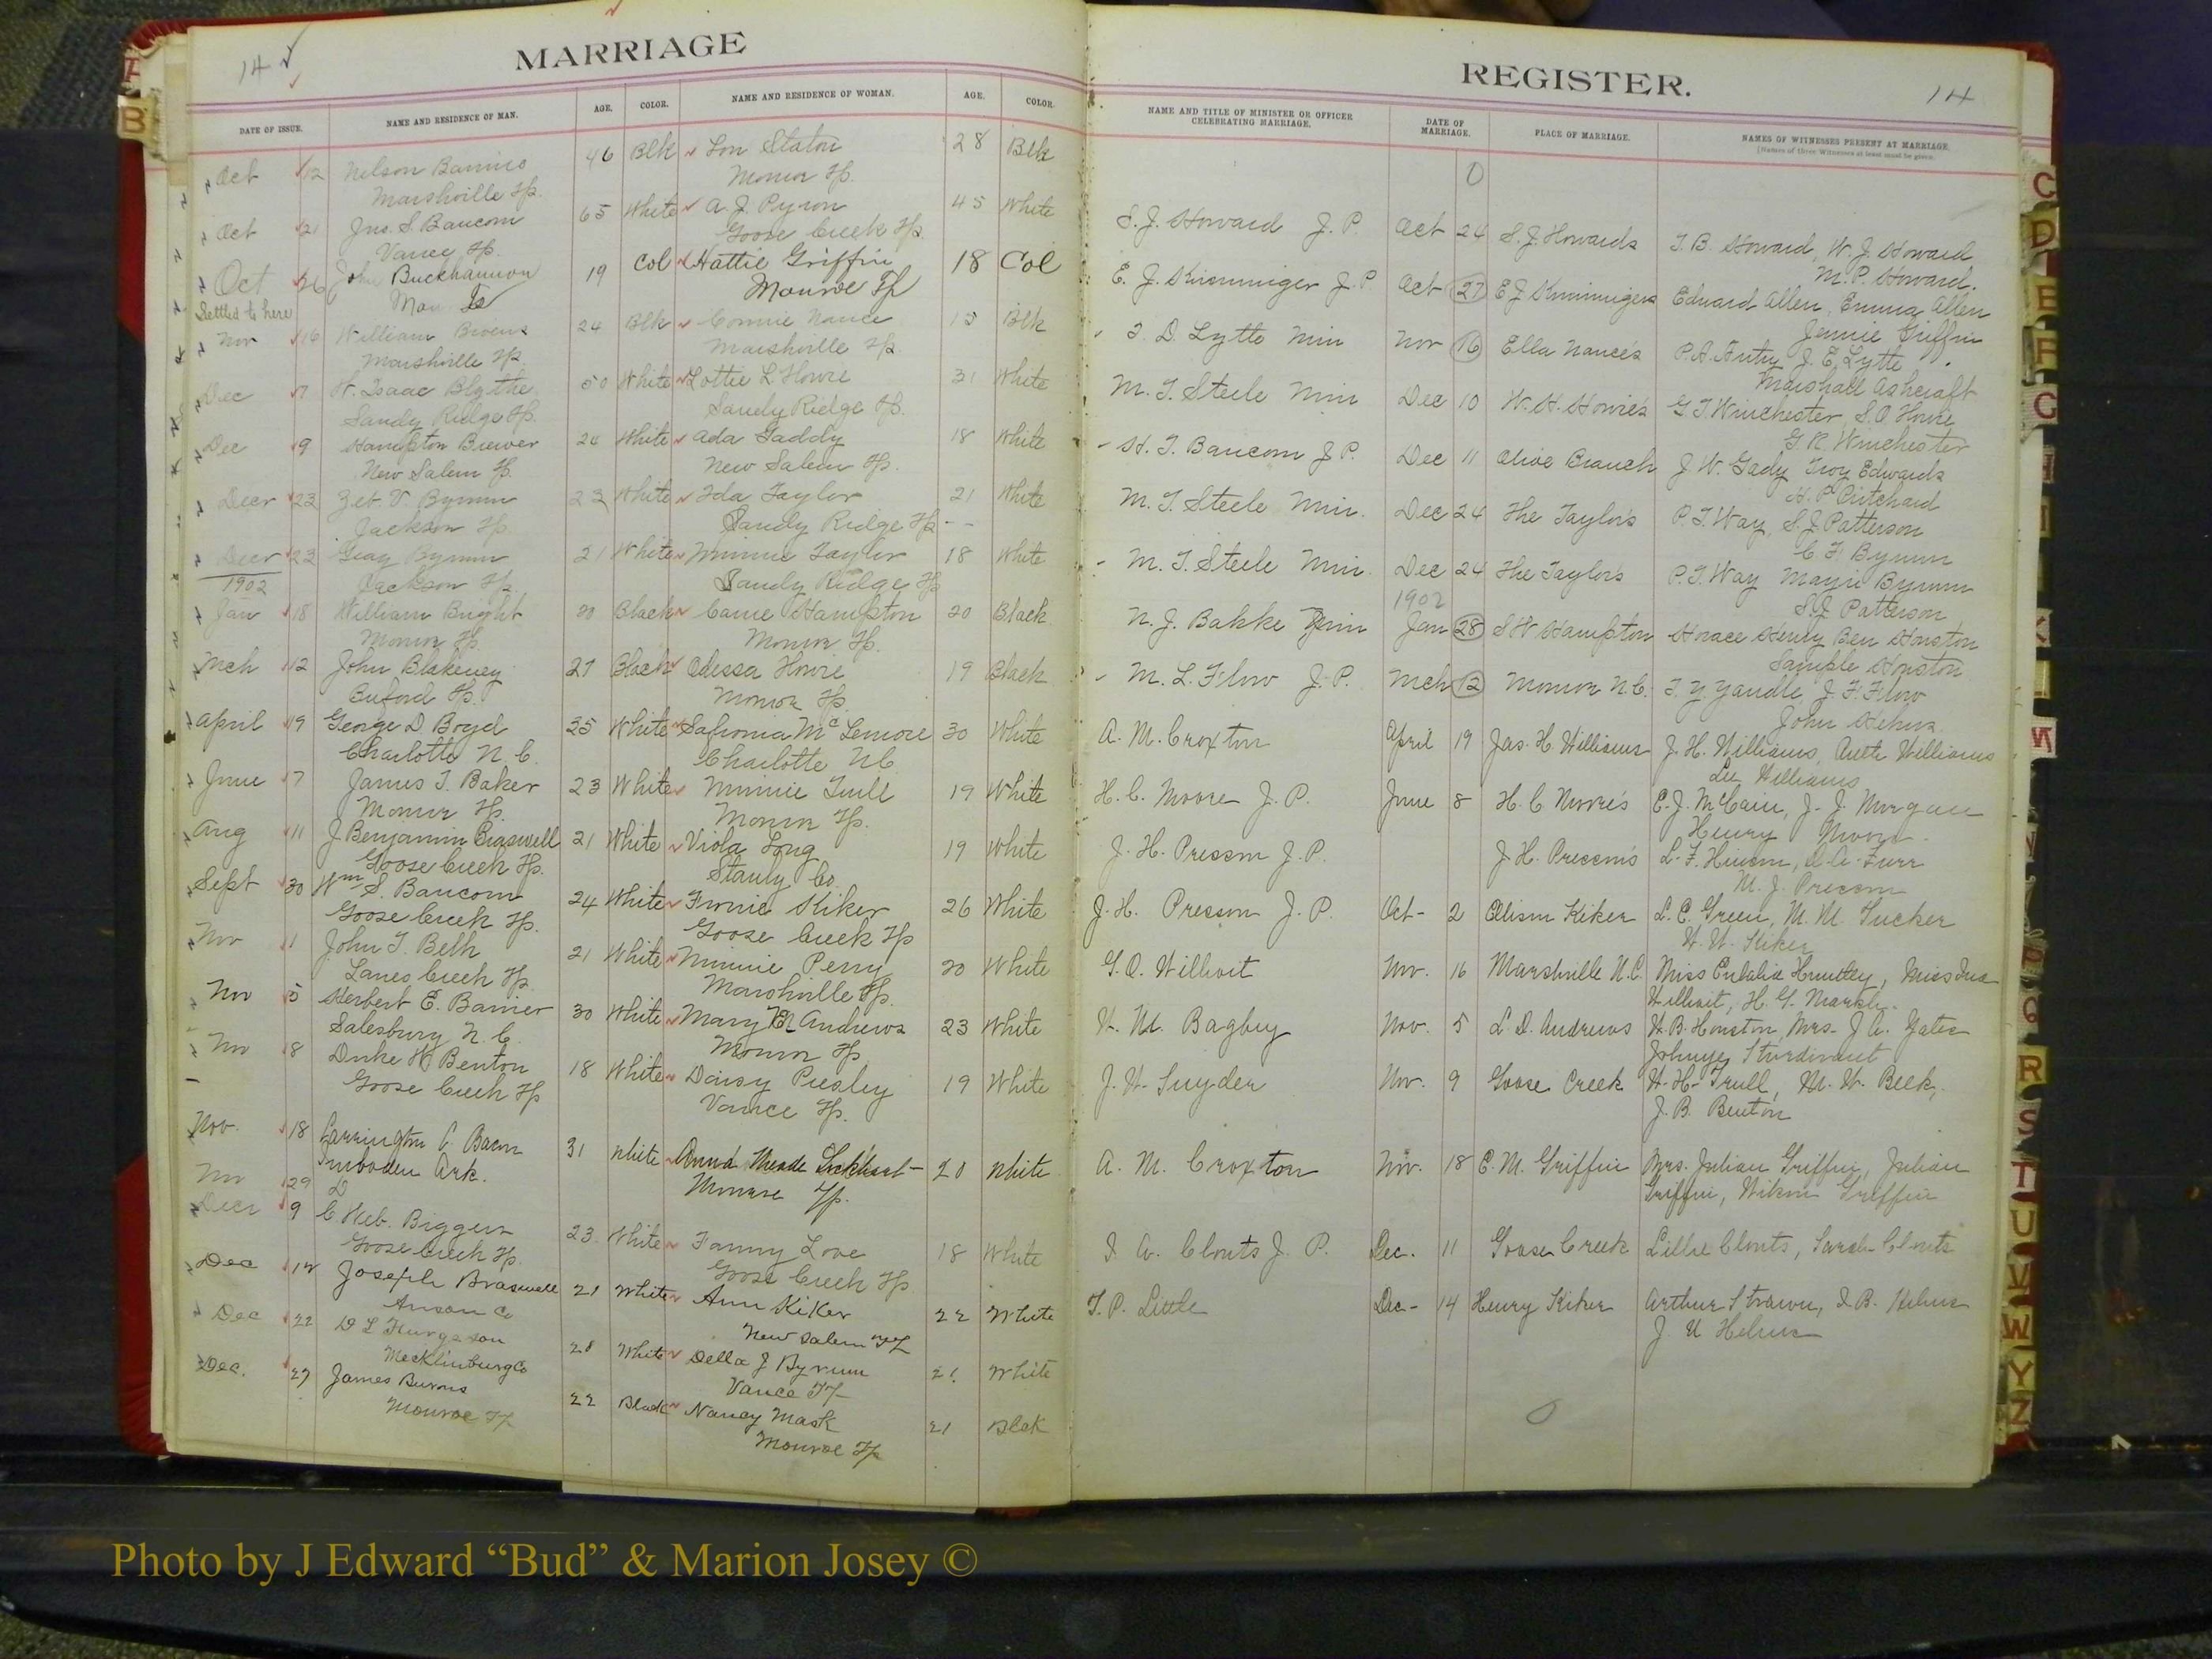 14
MARRIAGE
DATE OF ISSUE. NAME AND RESIDENCE OF MAN. AGE. COLOR. NAME AND RESIDENCE OF WOMAN. AGE. COLOR.
Oct 12 Nelson 46 Blk Lou Staton 28 Blk
Marshville Tp. Monroe Tp.
Oct 21 Jno. S. Baucom 65 White A. J. Pyron 45 White
Vance Tp. Goose Creek Tp.
Oct 26 John Buckhannon 19 Col Hattie Griffin 18 Col
Mon. Monroe Tp
Settled to here
Nov 16 William 24 Blk Connie Nance 15 Blk
Marshville Tp. Marshville Tp.
Dec 7 W. Isaac Blythe 50 White Lottie L Howie 31 White
Sandy Ridge Tp. Sandy Ridge Tp.
Dec 9 Hampton Brewer 24 White Ada Gaddy 18 White
New Salem Tp. New Salem Tp.
Decr 23 Zeb. V. Bynum 23 White Ida Taylor 21 White
Jackson Tp. Sandy Ridge Tp - -
Decr 23 Gray Bynum 21 White Minnie Taylor 18 White
1902 Jackson Tp. Sandy Ridge Tp
Jan 18 William Bright 20 Black Carrie Hampton 20 Black
Monroe Tp. Monroe Tp.
Mch 12 John Blakeney 27 Black Odessa Howie 19 Black
Buford Tp. Monroe Tp.
April 19 George D Boyd 35 White Safronia McLemore 30 White
Charlotte N. C. Charlotte N.C.
June 7 James T. Baker 23 White Minnie 19 White
Monroe Tp. Monroe Tp.
Aug 11 J Benjamin Braswell 21 White Viola Long 19 White
Goose Creek Tp. Stanly Co.
Sept 30 Wm S. Baucom 24 White Kiker 26 White
Goose Creek Tp. Goose Creek Tp
Nov 1 John T. Belk 21 White Minnie Perry 20 White
Lanes Creek Tp. Marshville Tp.
Nov 5 Herbert E. Barrier 30 White Mary Andrews 23 White
Salesbury N. C. Monroe Tp
Nov 8 Duke H Benton 18 White Daisy Presley 19 White
Goose Creek Tp Vance Tp.
Nov. 18 Carrington C. Bacon 31 White Anna Meade Lockhart 20 White
Imboden Ark. Monroe Tp.
Nov 29 D
Decr 9 C Web. Biggers 23 White Fanny Love 18 White
Goose Creek Tp. Goose Creek Tp
Dec 12 Joseph Braswell 21 White Ann Kiker 22 White
Anson Co New Salem Tp
Dec 22 D L Furgeson 28 White Della J Byrum 21 White
Mecklinburg Co Vance Tp
Dec. 27 James Burns 22 Black Nancy Mask 21 Black
Monroe Tp Monroe Tp
REGISTER.
14
NAME AND TITLE OF MINISTER OR OFFICER CELEBRATING MARRIAGE. DATE OF MARRIAGE. PLACE OF MARRIAGE. NAMES OF WITNESSES PRESENT AT MARRIAGE.
[Names of three Witnesses at least must be given.
0
S. J. Howard J. P. Oct 24 S. J. Howards T. B. Howard, W. J. Howard
M. P. Howard.
E. J. Krimminger J. P. Oct 27 E J Krimmigers Edward Allen, Emma Allen
Jennie Griffin
D. Lytle Min Nov 16 Ella Nance's P. A. Autry J. E. Lytle
Marshall Ashcraft
M. T. Steele Min Dec 10 W. H. Howie's G T. Winchester, S. O Howie
G. R. Winchester
H. T. Baucom J P. Dec 11 Olive Branch J W. Gady Troy Edwards
H. P. Pritchard
M. T. Steele Min. Dec 24 The Taylor's P. T. Way, S. J. Patterson
C. F. Bynum
M. T. Steele Min Dec 24 The Taylor's P. T. Way Bynum
S. J. Patterson
1902
N. J. Bakke Min Jan 28 S W Hampton Horace Henly Ben Houston
Sample Houston
M. L. Flow J. P. Mch 12 Monroe N. C. T. Y. Yandle, J. F. Flow
John Helms
A. M. Croxton April 19 Jas. H. Williams J. H. Williams, Williams
Lee Williams
H. C. Moore J. P. June 8 H. C Moore's E. J. McCain, J. J. Morgan
Henry Moore
J. H. Presson J. P. J. H. Presson's L. F. Hinson, Furr
M. J. Presson
J. H. Presson J. P. Oct- 2 Kiker L. C. Green, M. M. Tucker
Kiker
G. O. Wilhoit Nov. 16 Marshville N. C. Miss Eulalia Huntley, Miss
Wilhoit, H. G. Marsh.
Bagby Nov. 5 L. D. Andrews W. B. Houston, Mrs. J. Yates
Sturdivant
J. W. Snyder Nov. 9 Goose Creek W. H. Trull, M. W. Belk,
J. B. Benton
A. M. Croxton Nov. 18 E. M. Griffin Mrs. Julian Griffin, Julian
Griffin, Griffin
Clonts J. P. Dec. 11 Goose Creek Lillie Clonts, Sarah Clonts
T. P. Little Dec- 14 Henry Kiker Arthur Strawn, Helms
J. Helms
0
A
B
C
D
E
F
G
H
I
K
M
N
P
Q
R
S
T
U
V
W
Y
Z
Photo by J Edward “Bud” & Marion Josey ©